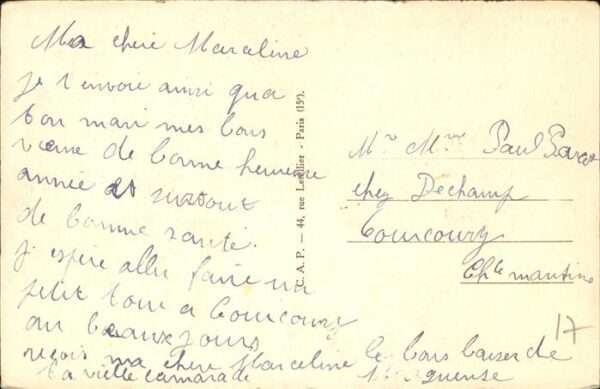 Ma chère Marceline
je t'envoie ainsi qua
ton mari mes bons
vœux de bonne heureuse
année et surtout
de bonne santé.
j espère aller faire un
petit tour a Courcoury
au beaux jours
reçois ma chere Marceline le bons baiser de
ta vielle camarade
C. A. P. — 44, rue Letellier - Paris (15e).
Mr Mme Paul
chez Dechamp
Courcoury
Chte maritime
17